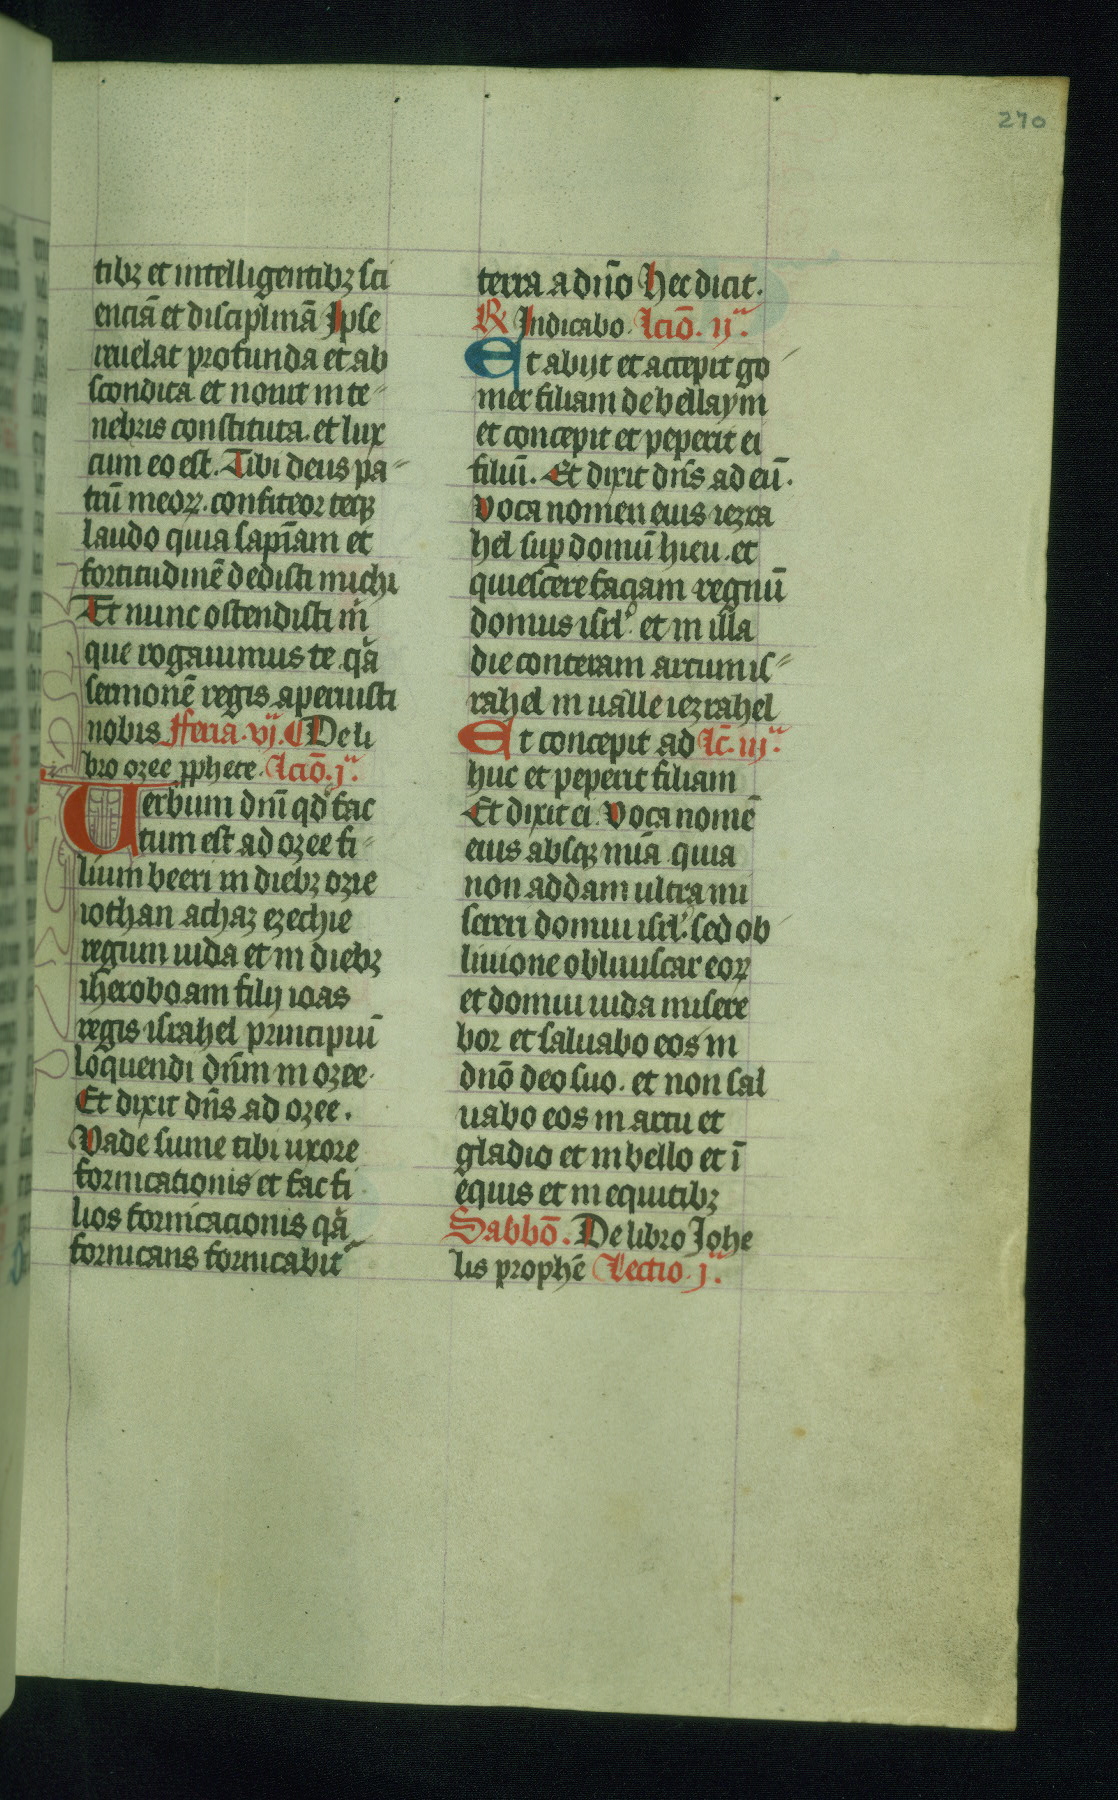 270
tibꝫ et intelligentibꝫ sci
enciā et disciplinā Ipse
reuelat profunda et ab
scondita et nouit in te-
nebris constituta. et lux
cum eo est. Tibi deus pa-
trū meoꝝ. confiteor teqꝫ
laudo quia sapīam et
fortitudinē dedisti michi
Et nunc ostendisti m̄
que rogauimus te. qa
sermonē regis aperuisti
nobis Fferia. vj. De li
bro ozee ꝓphete. Lcio. j.ᵃ
Uerbum dnī qd fac
tum est ad ozee fi-
lium beeri in diebꝫ ozie
iothan achaz ezechie
regum iuda et in diebꝫ
iheroboam filij ioas
regis israhel principiū
loquendi dnm̄ in ozee.
Et dixit dn̄s ad ozee.
Vade sume tibi uxore
fornicationis et fac fi
lios fornicacionis qa
fornicans fornicabit
terra a dn̄o Hec dicit.
℟ Indicabo. Lciō. ij.ᵃ
Et abijt et accepit go
mer filiam debellaym
et concepit et peperit ei
filiū. Et dixit dn̄s ad eū.
Voca nomen eius iezra
hel suꝑ domū hieu. et
quiescere faciam regnū
domus isrl. et in illa
die conteram arcum is-
rahel in ualle iezrahel
Et concepit ad Lc̄. iij.ᵃ
huc et peperit filiam
Et dixit ei. Voca nomē
eius absqꝫ mīa quia
non addam ultra mi
sereri domui isrl. sed ob
liuione obliuiscar eoꝝ
et domui iuda misere
bor et saluabo eos in
dnō deo suo. et non sal
uabo eos in arcu et
gladio et in bello et ī
equis et in equitibꝫ
Sabbō. De libro Johe
lis prophē Lectio. j.ᵃ